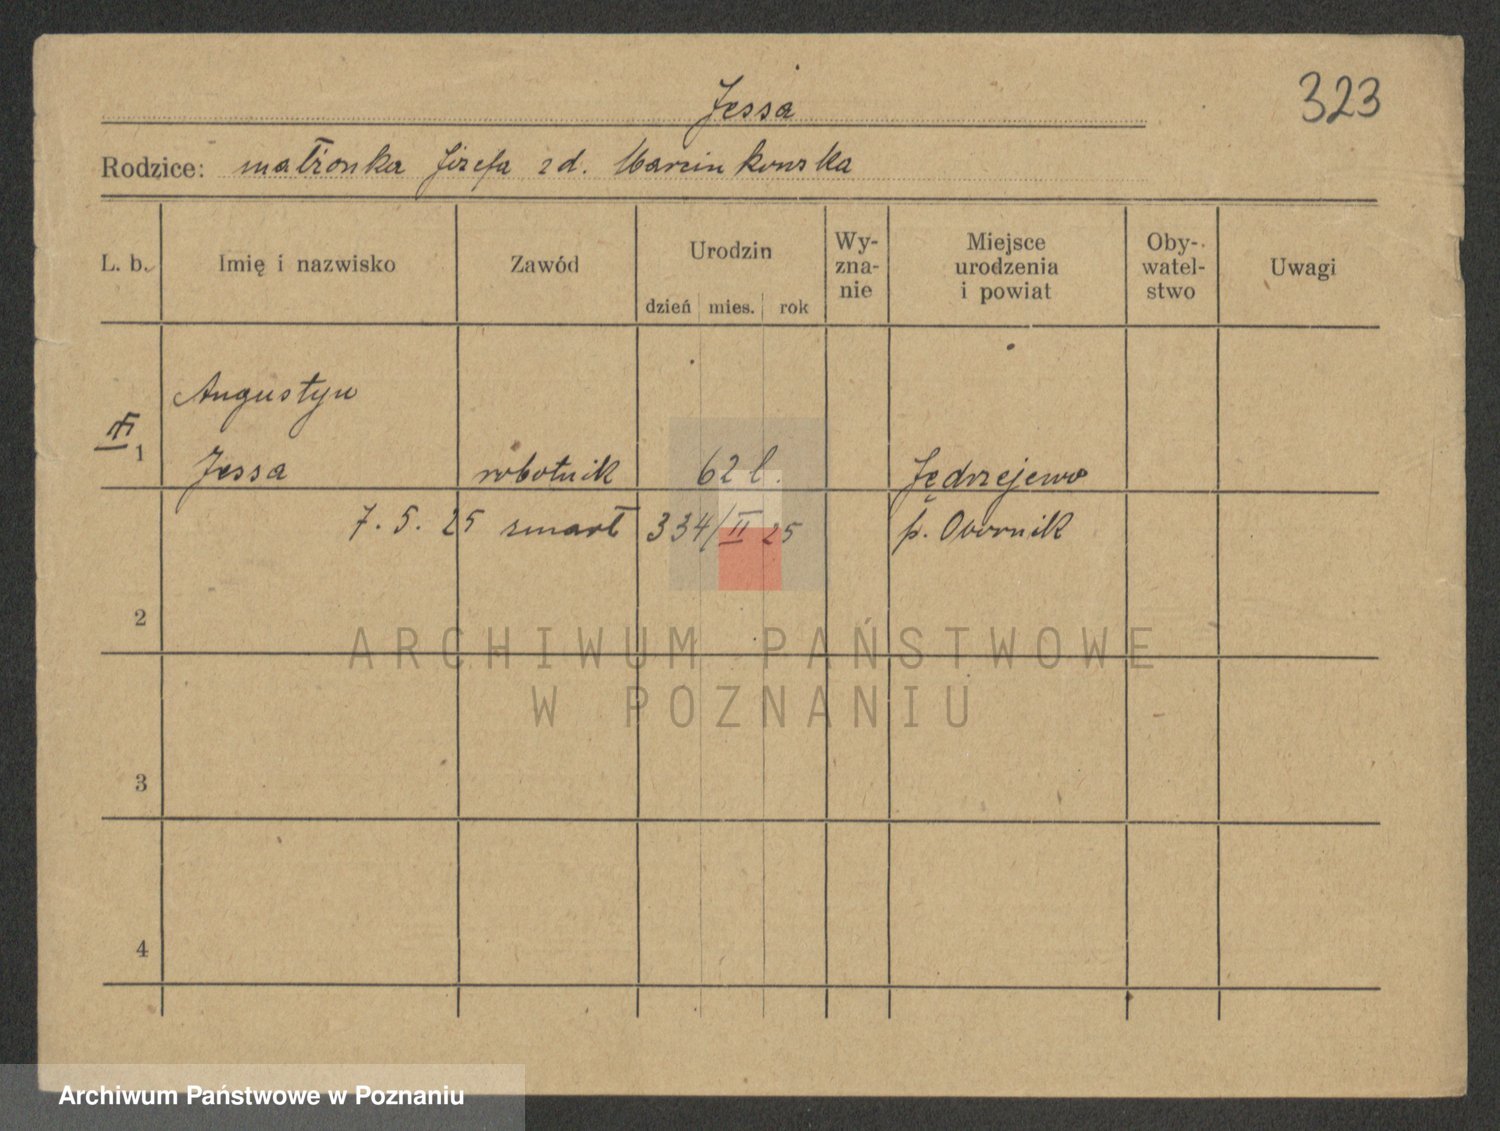 323
Jessa
Rodzice: małżonka Józefa zd. Marcinkowska
L. b. Imię i nazwisko Zawód Urodzin dzień mies. rok Wy-zna-nie Miejsce urodzenia i powiat Oby-watel-stwo Uwagi
Augustyn
1 Jessa robotnik 62 l. Jędrzejewo
7. 5. 25 zmarł 334/II 25 p. Obornik
2
ARCHIWUM PAŃSTWOWE
W POZNANIU
3
4
Archiwum Państwowe w Poznaniu